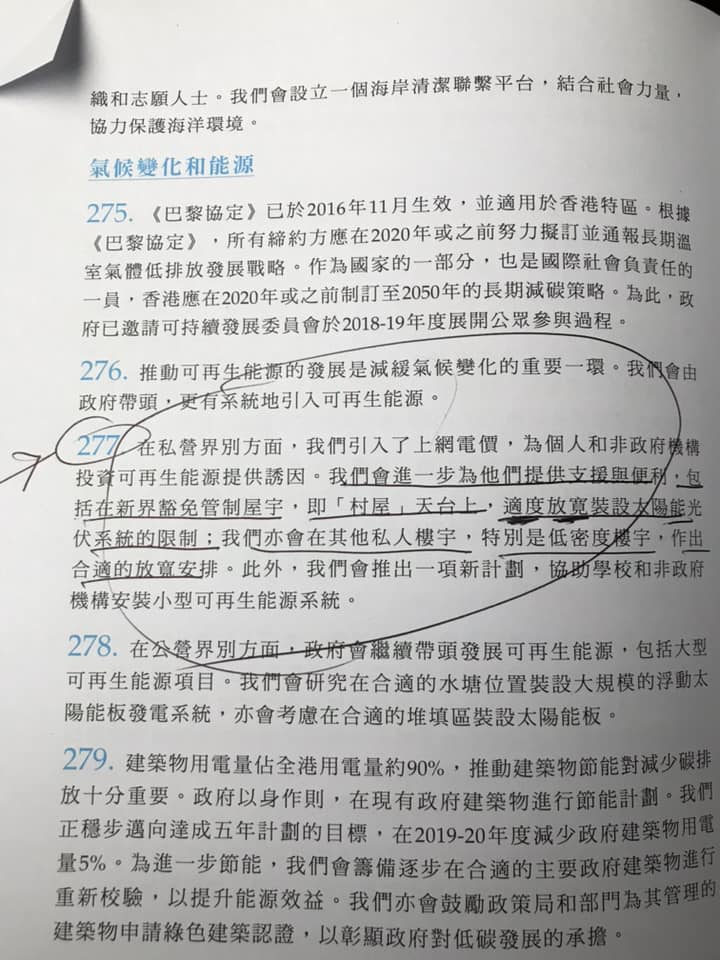 織和志願人士。我們會設立一個海岸清潔聯繫平台，結合社會力量，
協力保護海洋環境。
氣候變化和能源
275. 《巴黎協定》已於2016年11月生效，並適用於香港特區。根據
《巴黎協定》，所有締約方應在2020年或之前努力擬訂並通報長期溫
室氣體低排放發展戰略。作為國家的一部分，也是國際社會負責任的
一員，香港應在2020年或之前制訂至2050年的長期減碳策略。為此，政
府已邀請可持續發展委員會於2018-19年度展開公眾參與過程。
276. 推動可再生能源的發展是減緩氣候變化的重要一環。我們會由
政府帶頭，更有系統地引入可再生能源。
277. 在私營界別方面，我們引入了上網電價，為個人和非政府機構
投資可再生能源提供誘因。我們會進一步為他們提供支援與便利，包
括在新界豁免管制屋宇，即「村屋」天台上，適度放寬裝設太陽能光
伏系統的限制；我們亦會在其他私人樓宇，特別是低密度樓宇，作出
合適的放寬安排。此外，我們會推出一項新計劃，協助學校和非政府
機構安裝小型可再生能源系統。
278. 在公營界別方面，政府會繼續帶頭發展可再生能源，包括大型
可再生能源項目。我們會研究在合適的水塘位置裝設大規模的浮動太
陽能板發電系統，亦會考慮在合適的堆填區裝設太陽能板。
279. 建築物用電量佔全港用電量約90%，推動建築物節能對減少碳排
放十分重要。政府以身作則，在現有政府建築物進行節能計劃。我們
正穩步邁向達成五年計劃的目標，在2019-20年度減少政府建築物用電
量5%。為進一步節能，我們會籌備逐步在合適的主要政府建築物進行
重新校驗，以提升能源效益。我們亦會鼓勵政策局和部門為其管理的
建築物申請綠色建築認證，以彰顯政府對低碳發展的承擔。